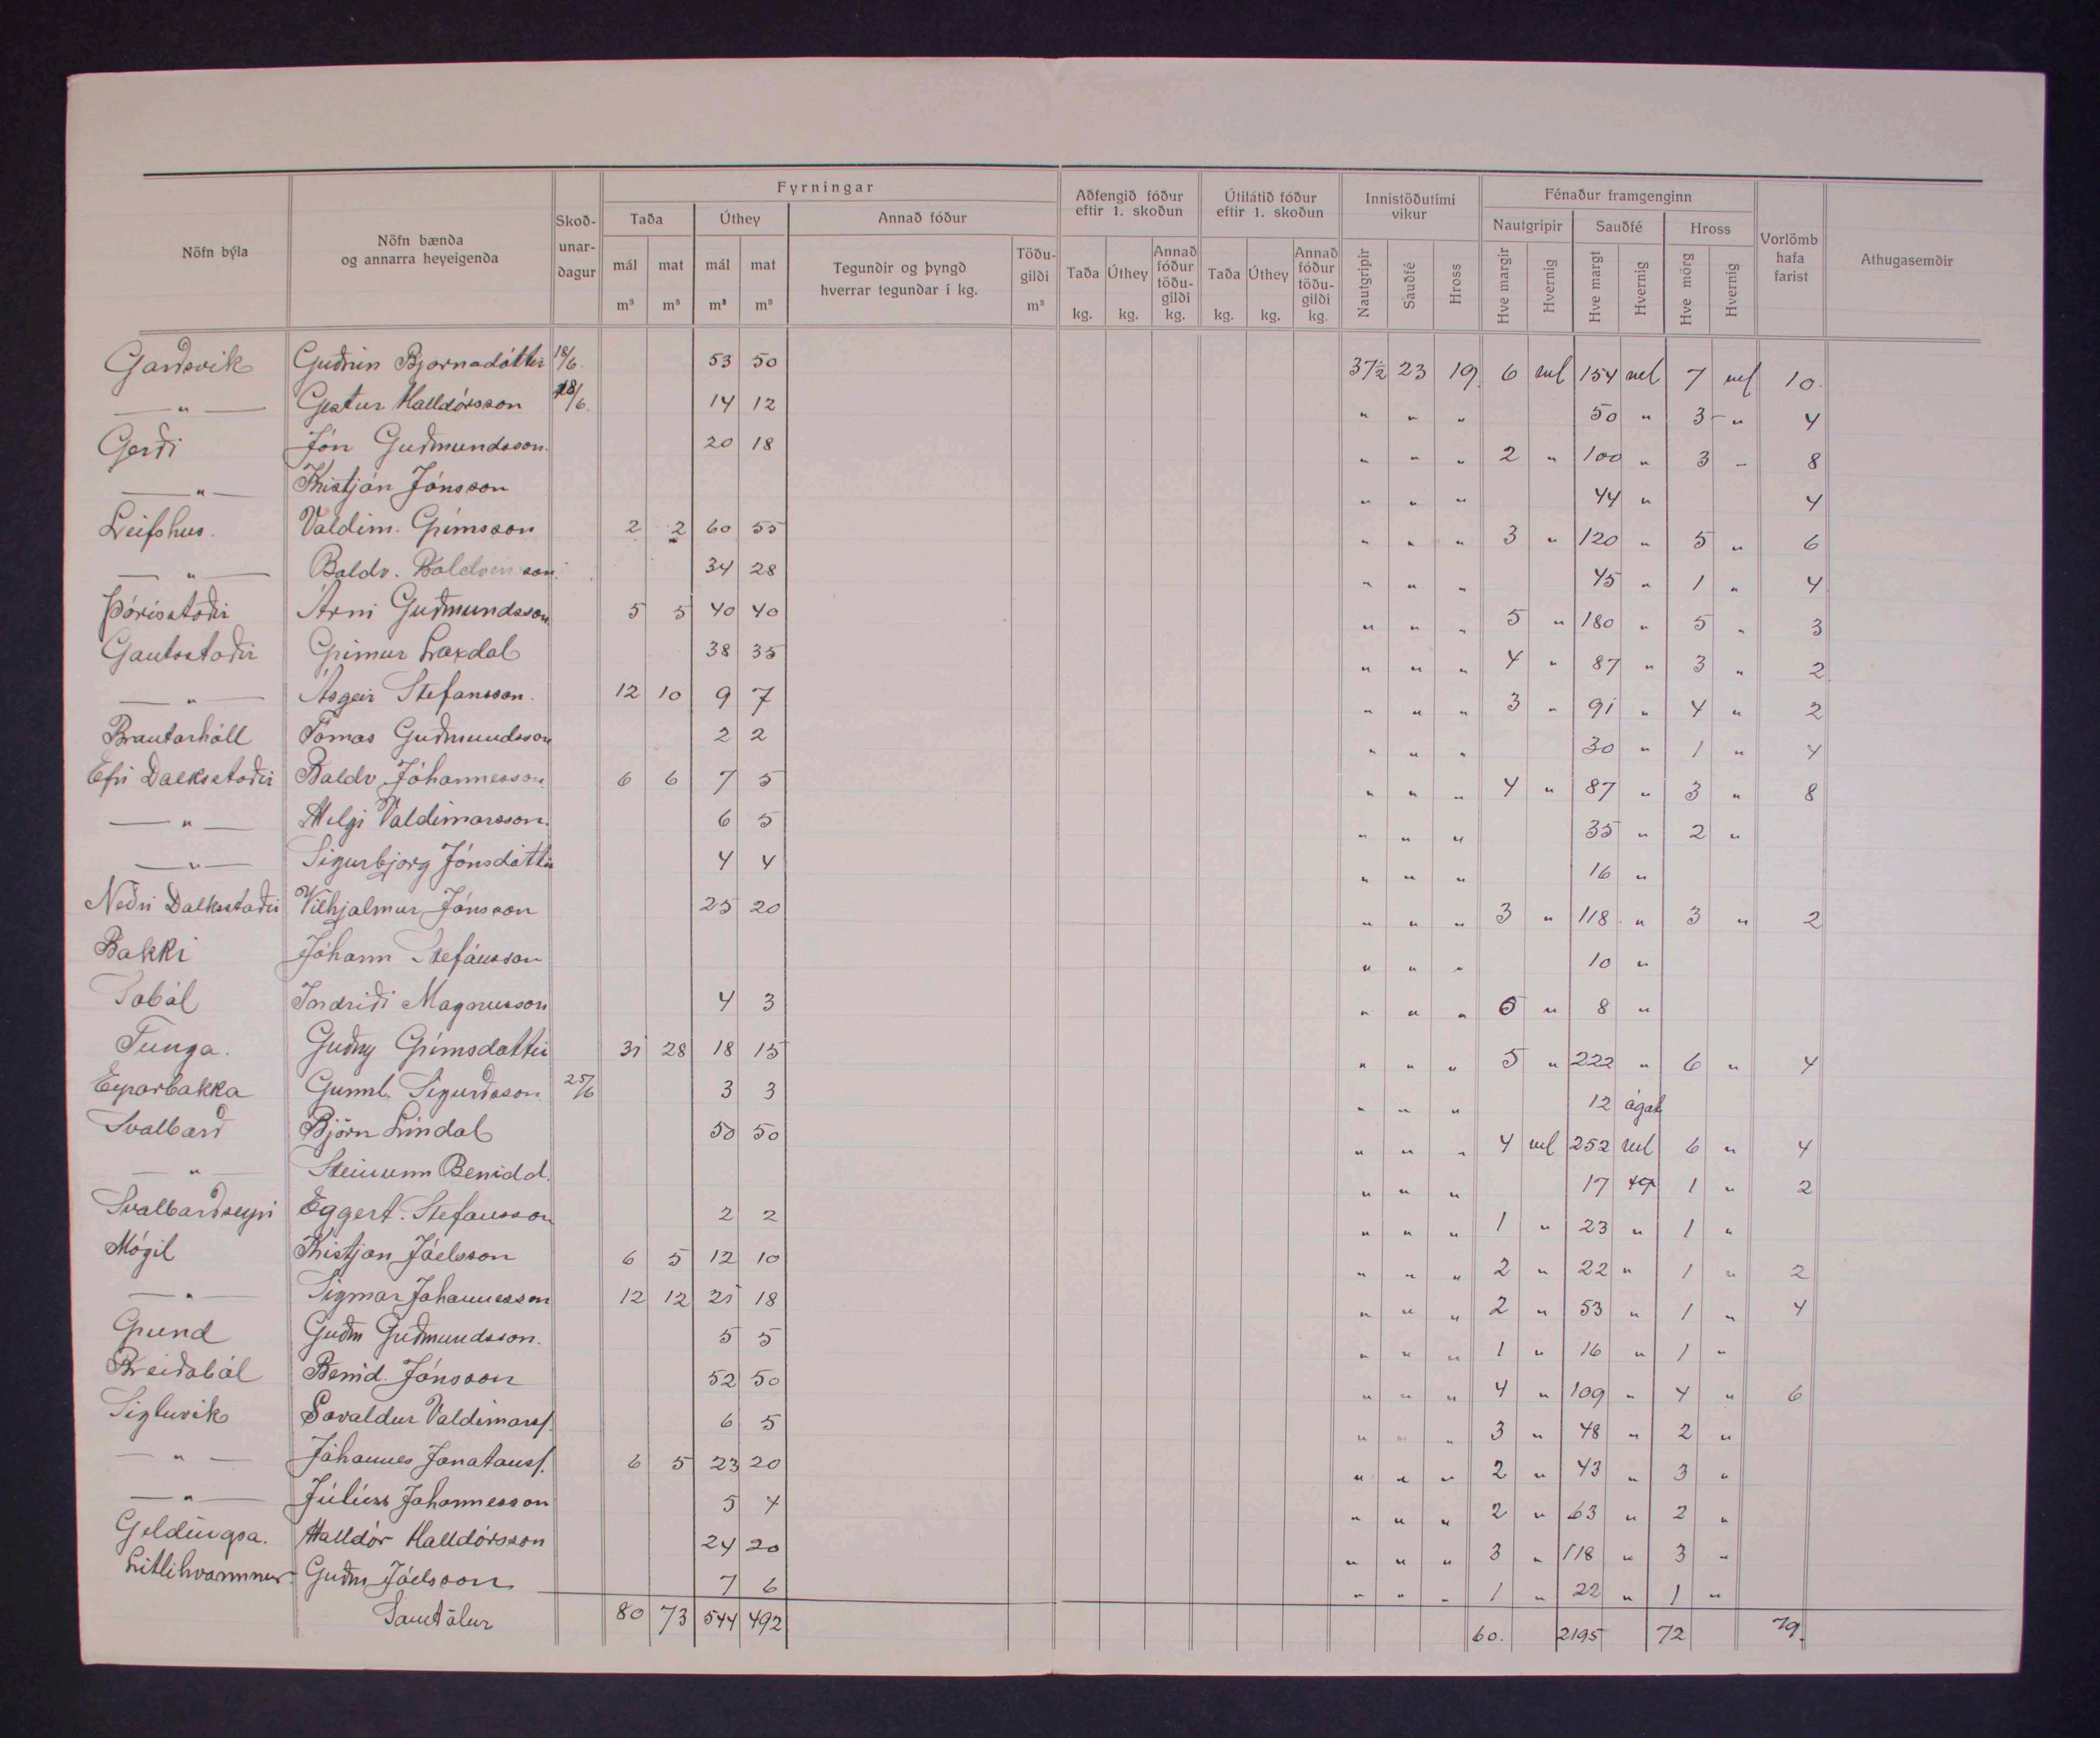 Nöfn býla
Nöfn bænda og annarra heyeigenda
Skoð-unar-dagur
Fyrningar
Taða
Úthey
Annað fóður
mál m³ mat m³ mál m³ mat m³
Tegundir og þyngd hverrar tegundar í kg.
Töðu-gildi m³
Aðfengið fóður eftir 1. skoðun
Taða kg. Úthey kg. Annað fóður töðu-gildi kg.
Útilátið fóður eftir 1. skoðun
Taða kg. Úthey kg. Annað fóður töðu-gildi kg.
Innistöðutími vikur
Nautgripir Sauðfé Hross
Fénaður framgenginn
Nautgripir Sauðfé Hross
Hve margir Hvernig Hve margt Hvernig Hve mörg Hvernig
Vorlömb hafa farist
Athugasemdir
Garðsvík Guðrún Bjarnadóttir 18/6. 53 50 37½ 23 19. 6 vel 154 vel 7 vel 10.
— " — Gestur Halldórsson 18/6. 14 12 " " " 50 " 3 " 4
Gerði Jón Guðmundsson. 20 18 " " " 2 " 100 " 3 " 8
— " — Kristján Jónsson " " " 44 " 4
Leifshus. Valdim. Grímsson 2 2 60 55 " " " 3 " 120 " 5 " 6
— " — Baldv. Baldvinsson. 34 28 " " " 45 " 1 " 4
Þórisstaðir Árni Guðmundsson 5 5 40 40 " " " 5 " 180 " 5 " 3
Gautsstaðir Grímur Laxdal 38 35 " " " 4 " 87 " 3 " 2
— " — Ásgeir Stefansson. 12 10 9 7 " " " 3 " 91 " 4 " 2
Brautarhóll Tómas Guðmundsson 2 2 " " " 30 " 1 " 4
Efri Dalksstaðir Baldv Jóhannesson. 6 6 7 5 " " " 4 " 87 " 3 " 8
— " — Helgi Valdimarsson. 6 5 " " " 35 " 2 "
— " — Sigurbjorg Jónsdóttir 4 4 " " " 16 "
Neðri Dalksstaðir Vilhjalmur Jónsson 25 20 " " " 3 " 118 " 3 " 2
Bakki Jóhann Stefánsson " " " 10 "
Indriði Magnusson 4 3 " " " " 8 "
Tunga. Guðny Grímsdottir 31 28 18 15 " " " 5 " 222 " 6 " 4
Eyrarbakka Gunnl. Sigurðsson 25/6 3 3 " " " 12 ágæt
Svalbarð Björn Líndal 50 50 " " " 4 vel 252 vel 6 " 4
— " — Steinunn Benid d. " " " 17 1 " 2
Svalbarðseyri Eggert. Stefansson 2 2 " " " 1 " 23 " 1 "
Mógil Kristjan Jóelsson 6 5 12 10 " " " 2 " 22 " 1 " 2
— " — Sigmar Jóhannesson 12 12 21 18 " " " 2 " 53 " 1 " 4
Grund Guðm Guðmundsson. 5 5 " " " 1 " 16 " 1 "
Breiðaból Benid. Jónsson 52 50 " " " 4 " 109 " 4 " 6
Sigluvik Sævaldur Valdimarss. 6 5 " " " 3 " 48 " 2 "
— " — Jóhannes Jonatanss. 6 5 23 20 " " " 2 " 43 " 3 "
— " — Júlíus Jóhannesson 5 4 " " " 2 " 63 " 2 "
Geldingsa. Halldór Halldórsson 24 20 " " " 3 " 118 " 3 "
Litlihvammur Guðm Jóelsson 7 6 " " " 1 " 22 " 1 "
Samtölur 80 73 544 492 60. 2195 72 79.